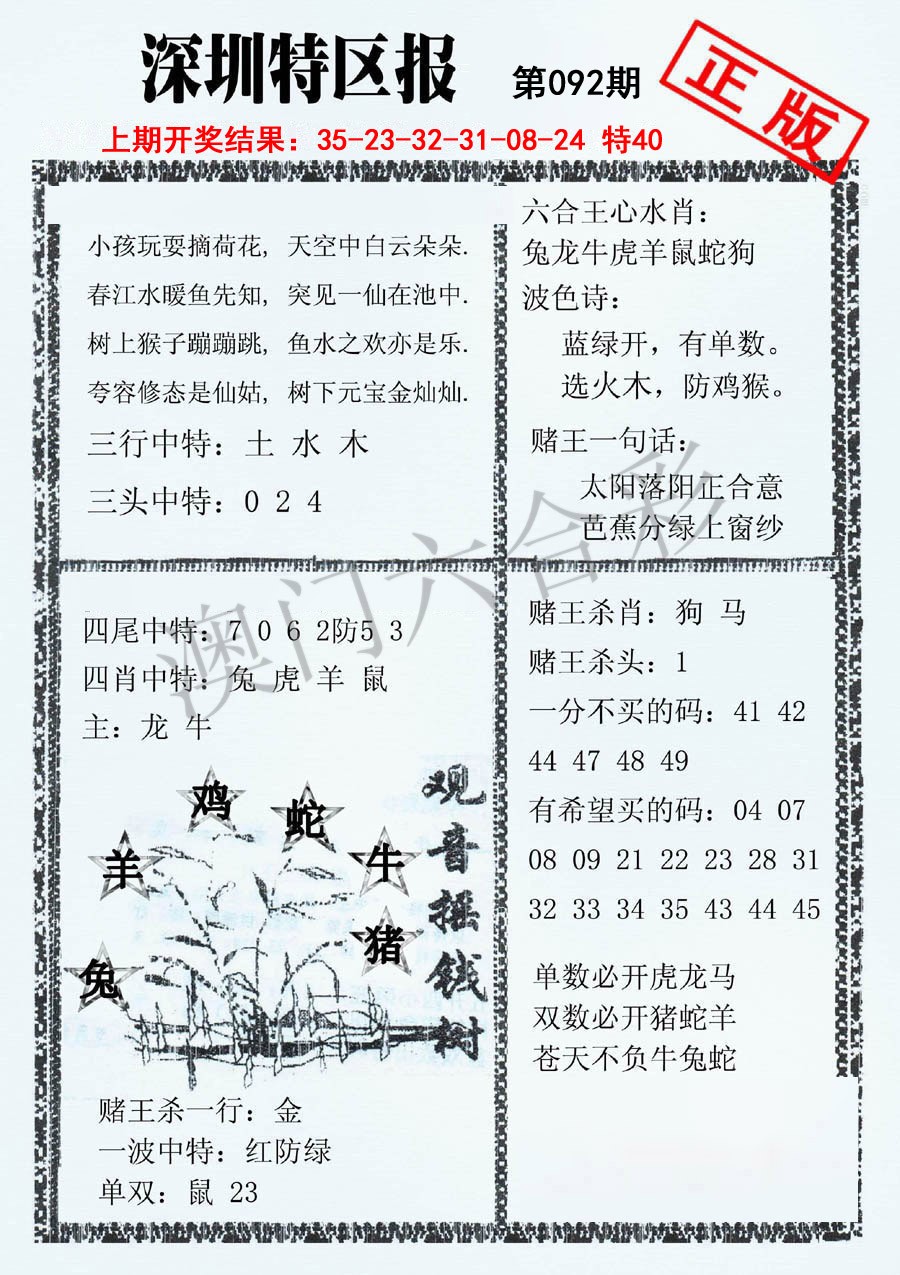 深圳特区报 第092期
正版
上期开奖结果：35-23-32-31-08-24 特40
小孩玩耍摘荷花, 天空中白云朵朵.
春江水暖鱼先知, 突见一仙在池中.
树上猴子蹦蹦跳, 鱼水之欢亦是乐.
夸容修态是仙姑, 树下元宝金灿灿.
三行中特：土 水 木
三头中特：0 2 4
六合王心水肖：
兔龙牛虎羊鼠蛇狗
波色诗：
蓝绿开，有单数。
选火木，防鸡猴。
赌王一句话：
太阳落阳正合意
芭蕉分绿上窗纱
澳门六合彩
四尾中特：7 0 6 2防5 3
四肖中特：兔 虎 羊 鼠
主：龙 牛
鸡
蛇
羊
牛
猪
兔
观音摇钱树
赌王杀一行：金
一波中特：红防绿
单双：鼠 23
赌王杀肖：狗 马
赌王杀头：1
一分不买的码：41 42
44 47 48 49
有希望买的码：04 07
08 09 21 22 23 28 31
32 33 34 35 43 44 45
单数必开虎龙马
双数必开猪蛇羊
苍天不负牛兔蛇